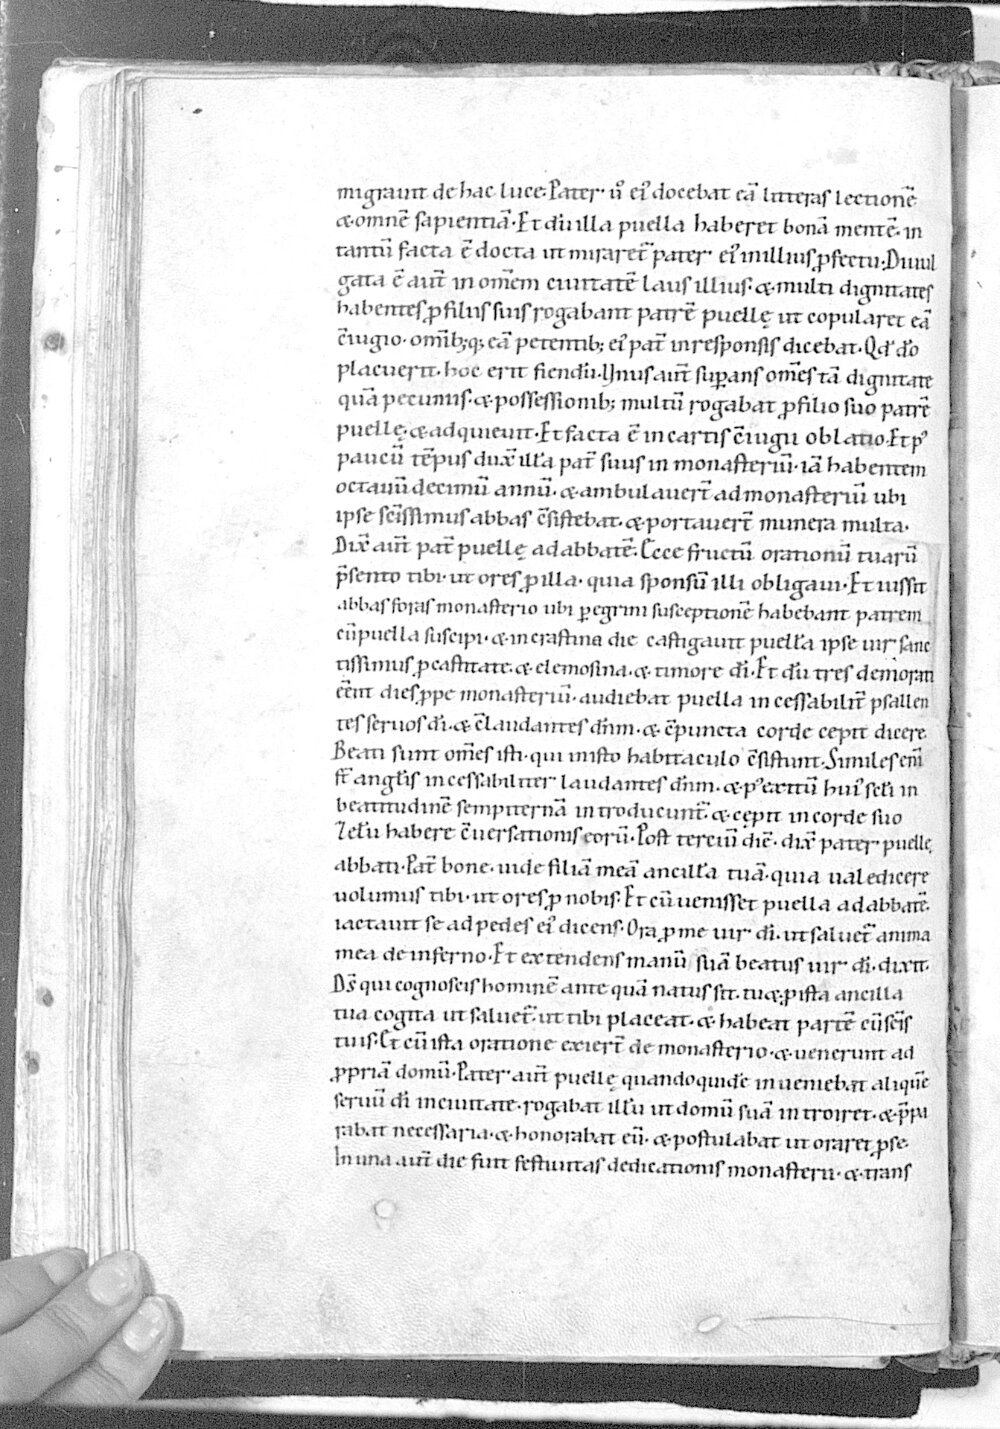 migrauit de hac luce. Pater ũ ei᾽ docebat eã litteras lectionẽ
& omnẽ sapientiã. Et dũ illa puella haberet bonã mentẽ. in
tantũ facta ẽ docta ut miraret᷑ pater ei᾽ in illius ꝓfectu. Diuul
gata ẽ aut̃ in om̃em ciuitatẽ laus illius. & multi dignitates
habentes ꝓ filiis suis rogabant patrẽ puellę ut copularet eã
c̃iugio. omib; q; eã petentib; ei᾽ pat᷑ in responsis dicebat. Qd᾽ dõ
placuerit. hoc erit fiendũ. Vnus aut̃ suꝑans om̃es tã dignitate
quã pecuniis. & possessionib; multũ rogabat ꝓ filio suo patrẽ
puellę. & adquieuit. Et facta ẽ in cartis c̃iugii oblatio. Et p᾽
paucũ tẽpus dux̃ illã pat᷑ suus in monasteriũ. iã habentem
octauũ decimũ annũ. & ambulauer̃t ad monasteriũ ubi
ipse sc̃issimus abbas c̃sistebat. & portauer̃t munera multa.
Dix̃ aut̃ pat᷑ puellę ad abbatẽ. Ecce fructũ orationũ tuarũ
p̃sento tibi. ut ores ꝓ illa. quia sponsũ illi obligaui. Et iussit
abbas foras monasterio ubi ꝑegrini susceptionẽ habebant patrem
cũ puella suscipi. & in crastina die castigauit puellã ipse uir sanc
tissimus ꝓ castitate. & elemosina. & timore dĩ. Et dũ tres demorati
c̃ent dies ꝓpe monasteriũ. audiebat puella incessabilit᷑ psallen
tes seruos dĩ. & c̃laudantes dñm. & c̃puncta corde cepit dicere
Beati sunt om̃es isti. qui in isto habitaculo c̃sistunt. Similes eni᾽
st̃ anglis incessabiliter laudantes dñm. & p᾽ exitũ hui᾽ sc̃li in
beatitudinẽ sempiternã introducunt᷑. & cępit in corde suo
zelũ habere c̃uersationis eorũ. Post terciũ diẽ. dix̃ pater puellę
abbati. Pat᷑ bone. uide filiã meã ancillã tuã. quia ualedicere
uolumus tibi. ut ores ꝓ nobis. Et cũ uenisset puella ad abbatẽ.
iactauit se ad pedes ei᾽ dicens. Ora ꝓ me uir dĩ. ut saluet᷑ anima
mea de inferno. Et extendens manũ suã beatus uir dĩ. dixit.
Ds̃ qui cognoscis hominẽ ante quã natus sit. tu ꝓ ista ancilla
tua cogita ut saluet᷑. ut tibi placeat. & habeat partẽ cũ sc̃is
tuis. Et cũ ista oratione exier̃t de monasterio. & uenerunt ad
ꝓpriã domũ. Pater aut̃ puellę quandoquidẽ inueniebat aliquẽ
seruũ dĩ in ciuitate. rogabat illũ ut domũ suã introiret. & p̃pa
rabat necessaria. & honorabat eũ. & postulabat ut oraret ꝓ se.
In una aut̃ die fuit festiuitas dedicationis monasterii. & trans